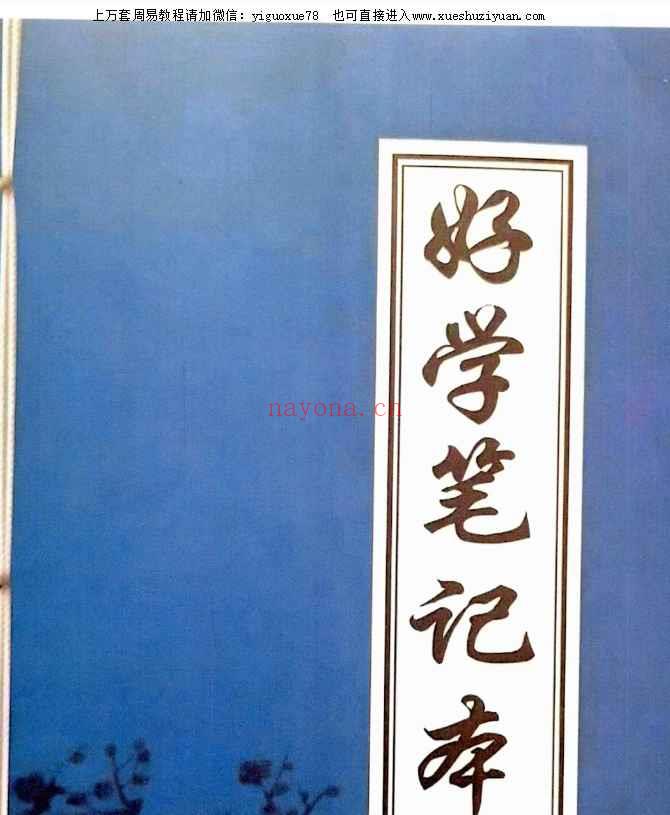 上万套周易教程请加微信：yiguoxue78 也可直接进入www.xueshuziyuan.com
好学笔记本
nayona.cn